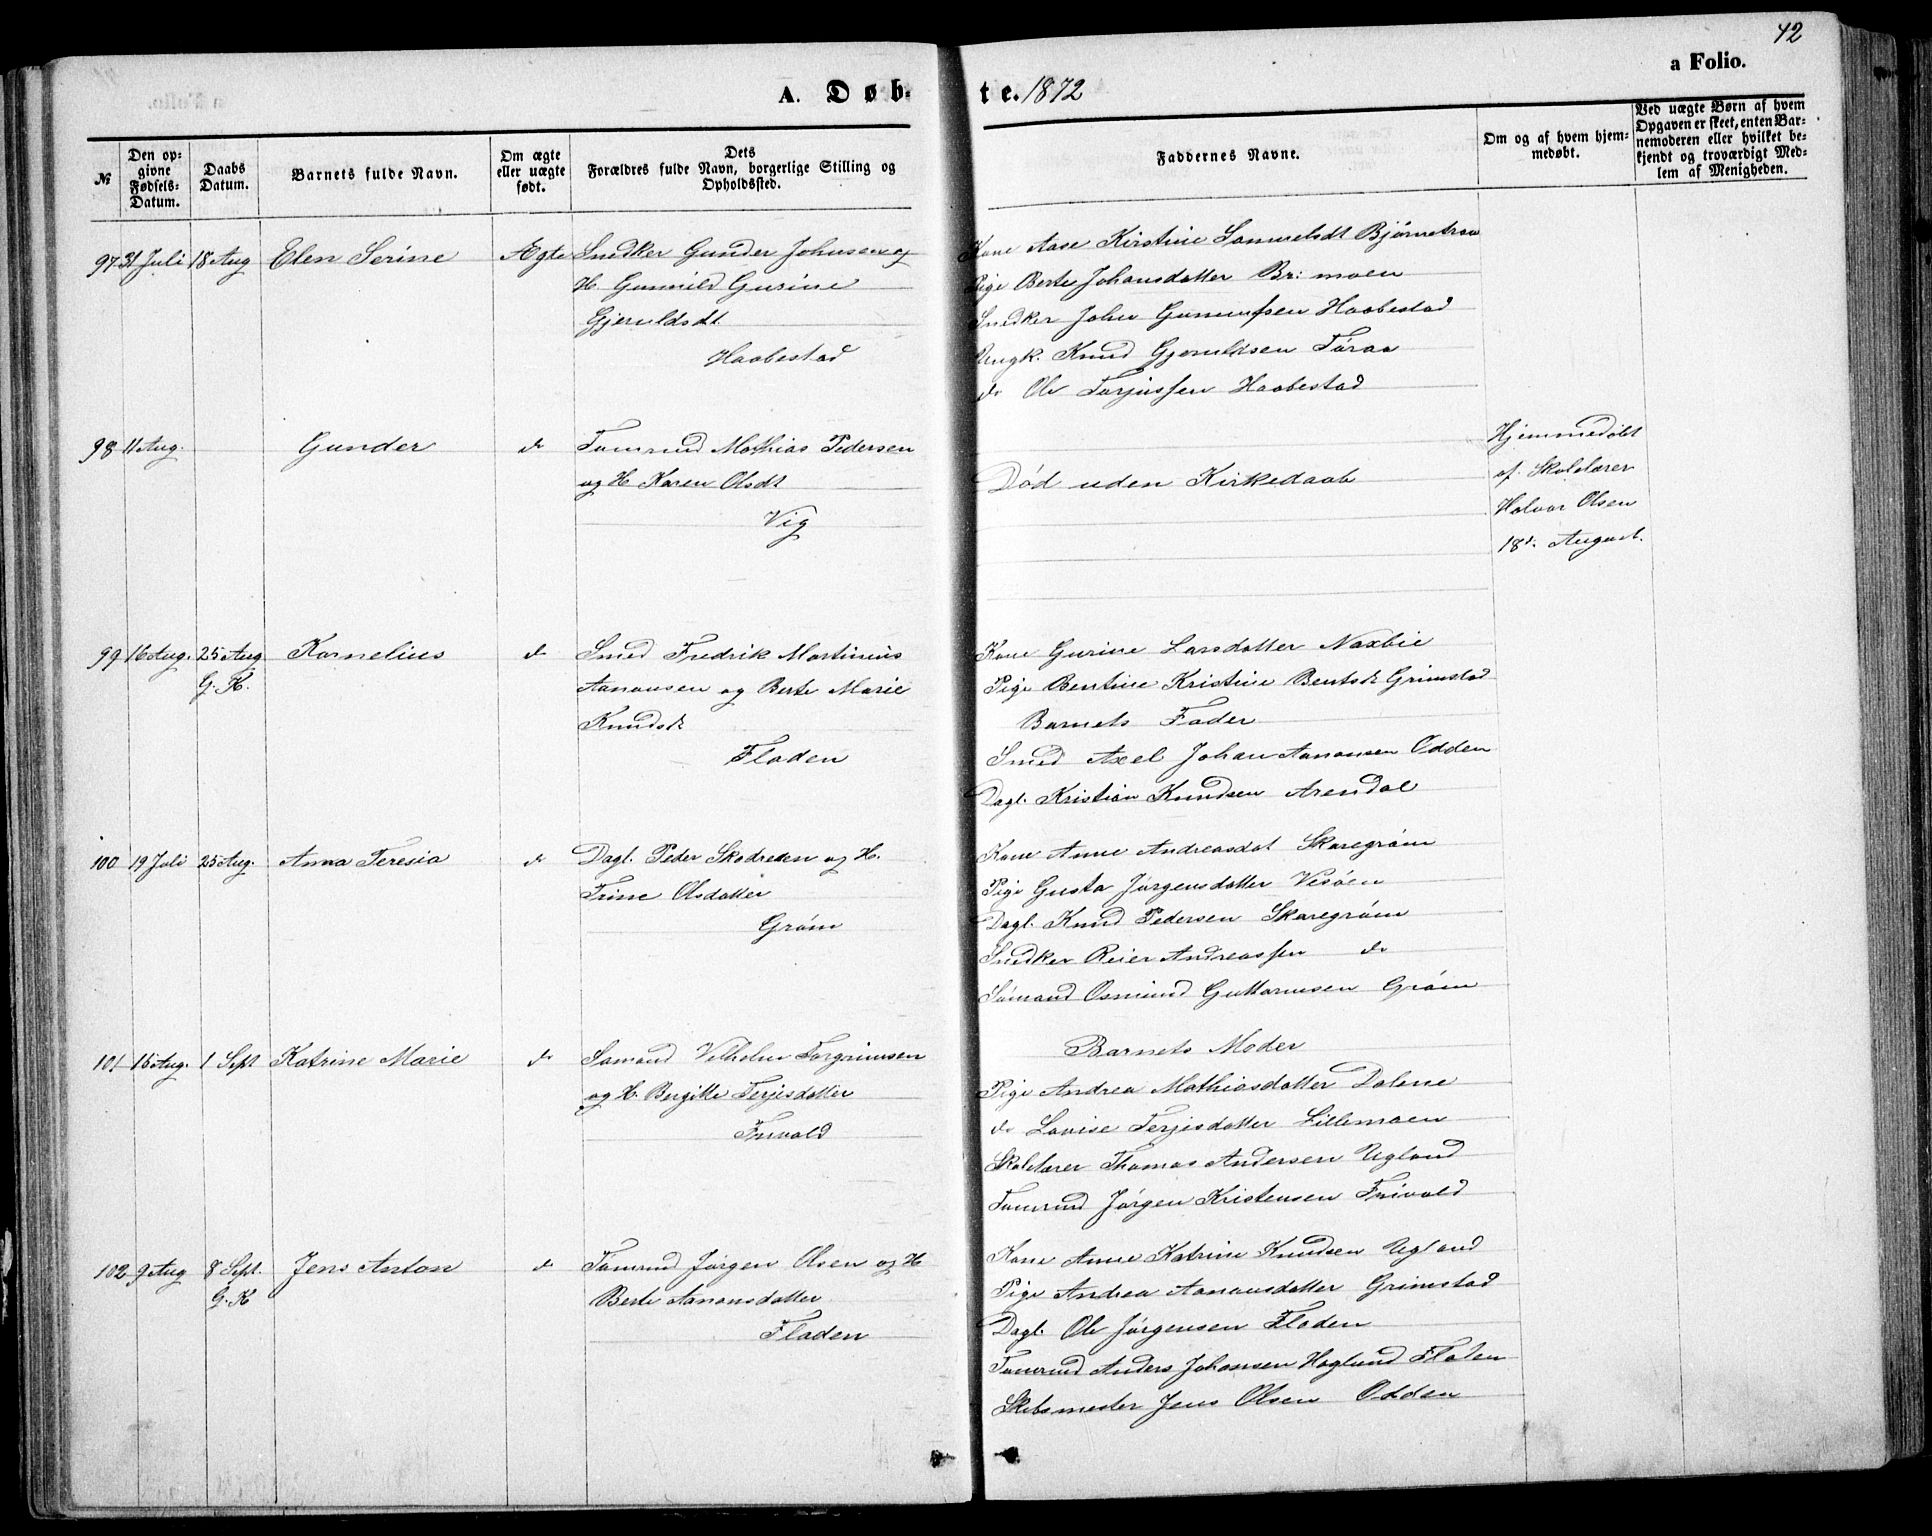 42
a Folio.
A. Døb-
te. 1872
№
Den op-
givne
Fødsels-
Datum.
Daabs
Datum.
Barnets fulde Navn.
Om ægte
eller uægte
født.
Dets
Forældres fulde Navn, borgerlige Stilling og
Opholdssted.
Faddernes Navne.
Om og af hvem hjem-
medøbt.
Ved uægte Børn af hvem
Opgaven er skeet, enten Bar-
nemoderen eller hvilket be-
kjendt og troværdigt Med-
lem af Menigheden.
97 31 Juli 18 Aug Elen Serine Ægte Snedker Gunder Johnsen og
H. Gunnild Gurine
Gjeruldsdt.
Haabestad
Kone Aase Kirstine Samuelsdt
Pige Berte Johansdatter Br: moen
Snedker John Gunnufsen Haabestad
Ungk. Knud Gjeruldsen Töraa
do Ole Torjussen Haabestad
98 11 Aug. Gunder do Tömrmd Mathias Pedersen
og H. Karen Olsdt
Vig
Död uden Kirkedaab
Hjemmedöbt
af. Skolelærer
Halvor Olsen
18d. August.
99 16 Aug. 25 Aug Kornelius do Smed Fredrik Martinius
G. K.
Aanonsen og Berte Marie
Knudsdt
Fladen
Kone Gurine Larsdatter Naxbie
Pige Bentine Kristine Bentsdt Grimstad
Barnets Fader
Smed Axel Johan Aanonsen Odden
Dagl. Kristian Knudsen Arendal
100 19 Juli 25 Aug. Anna Teresia do Dagl. Peder og H.
Trine Olsdatter
Gröm
Kone Anne Andreasdat Skaregröm
Pige Gusta Jörgensdatter Vesöen
Dagl. Knud Pedersen Skaregröm
Snedker Reier Andreassen do
Sömand Osmund Guttormsen Gröm
101 15 Aug. 1 Sept Katrine Marie do Sömand Vilhelm Torgrimsen
og H. Bergitte Terjesdatter
Frivold
Barnets Moder
Pige Andrea Mathiasdatter Dalene
do Lovise Terjesdatter Lillemoen
Skolelærer Thomas Andersen Ugland
Tömrmd Jörgen Kristensen Frivold
102 9 Aug 8 Sept. Jens Anton do Tömrmd Jörgen Olsen og H
G. K
Berte Aanonsdatter
Fladen
Kone Anne Katrine Knudsen Ugland
Pige Andrea Aanonsdatter Grimstad
Dagl. Ole Jörgensen Fladen
Tömrmd Anders Johansen Haglund Fladen
Skibsmester Jens Olsen Odden